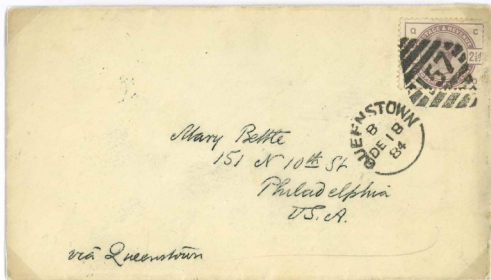 POSTAGE & REVENUE
Q C
2½
57
QUEENSTOWN
8
DE 18
84
Mary Bettle
151 N 10th St
Philadelphia
U.S.A.
via Queenstown